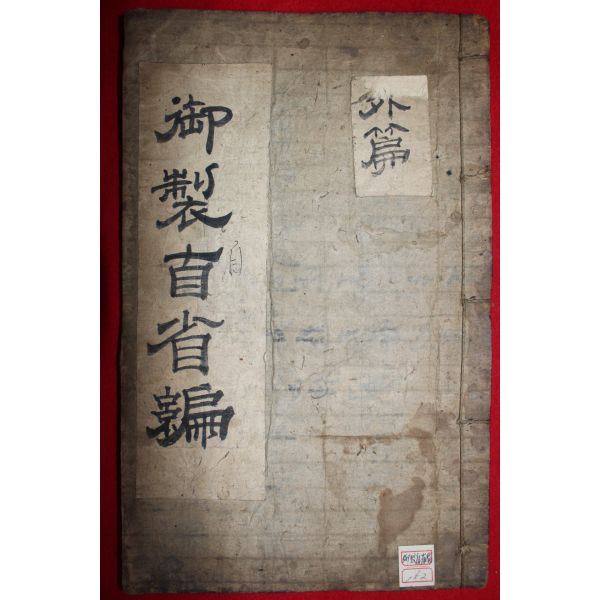 外篇
御製自省編
自